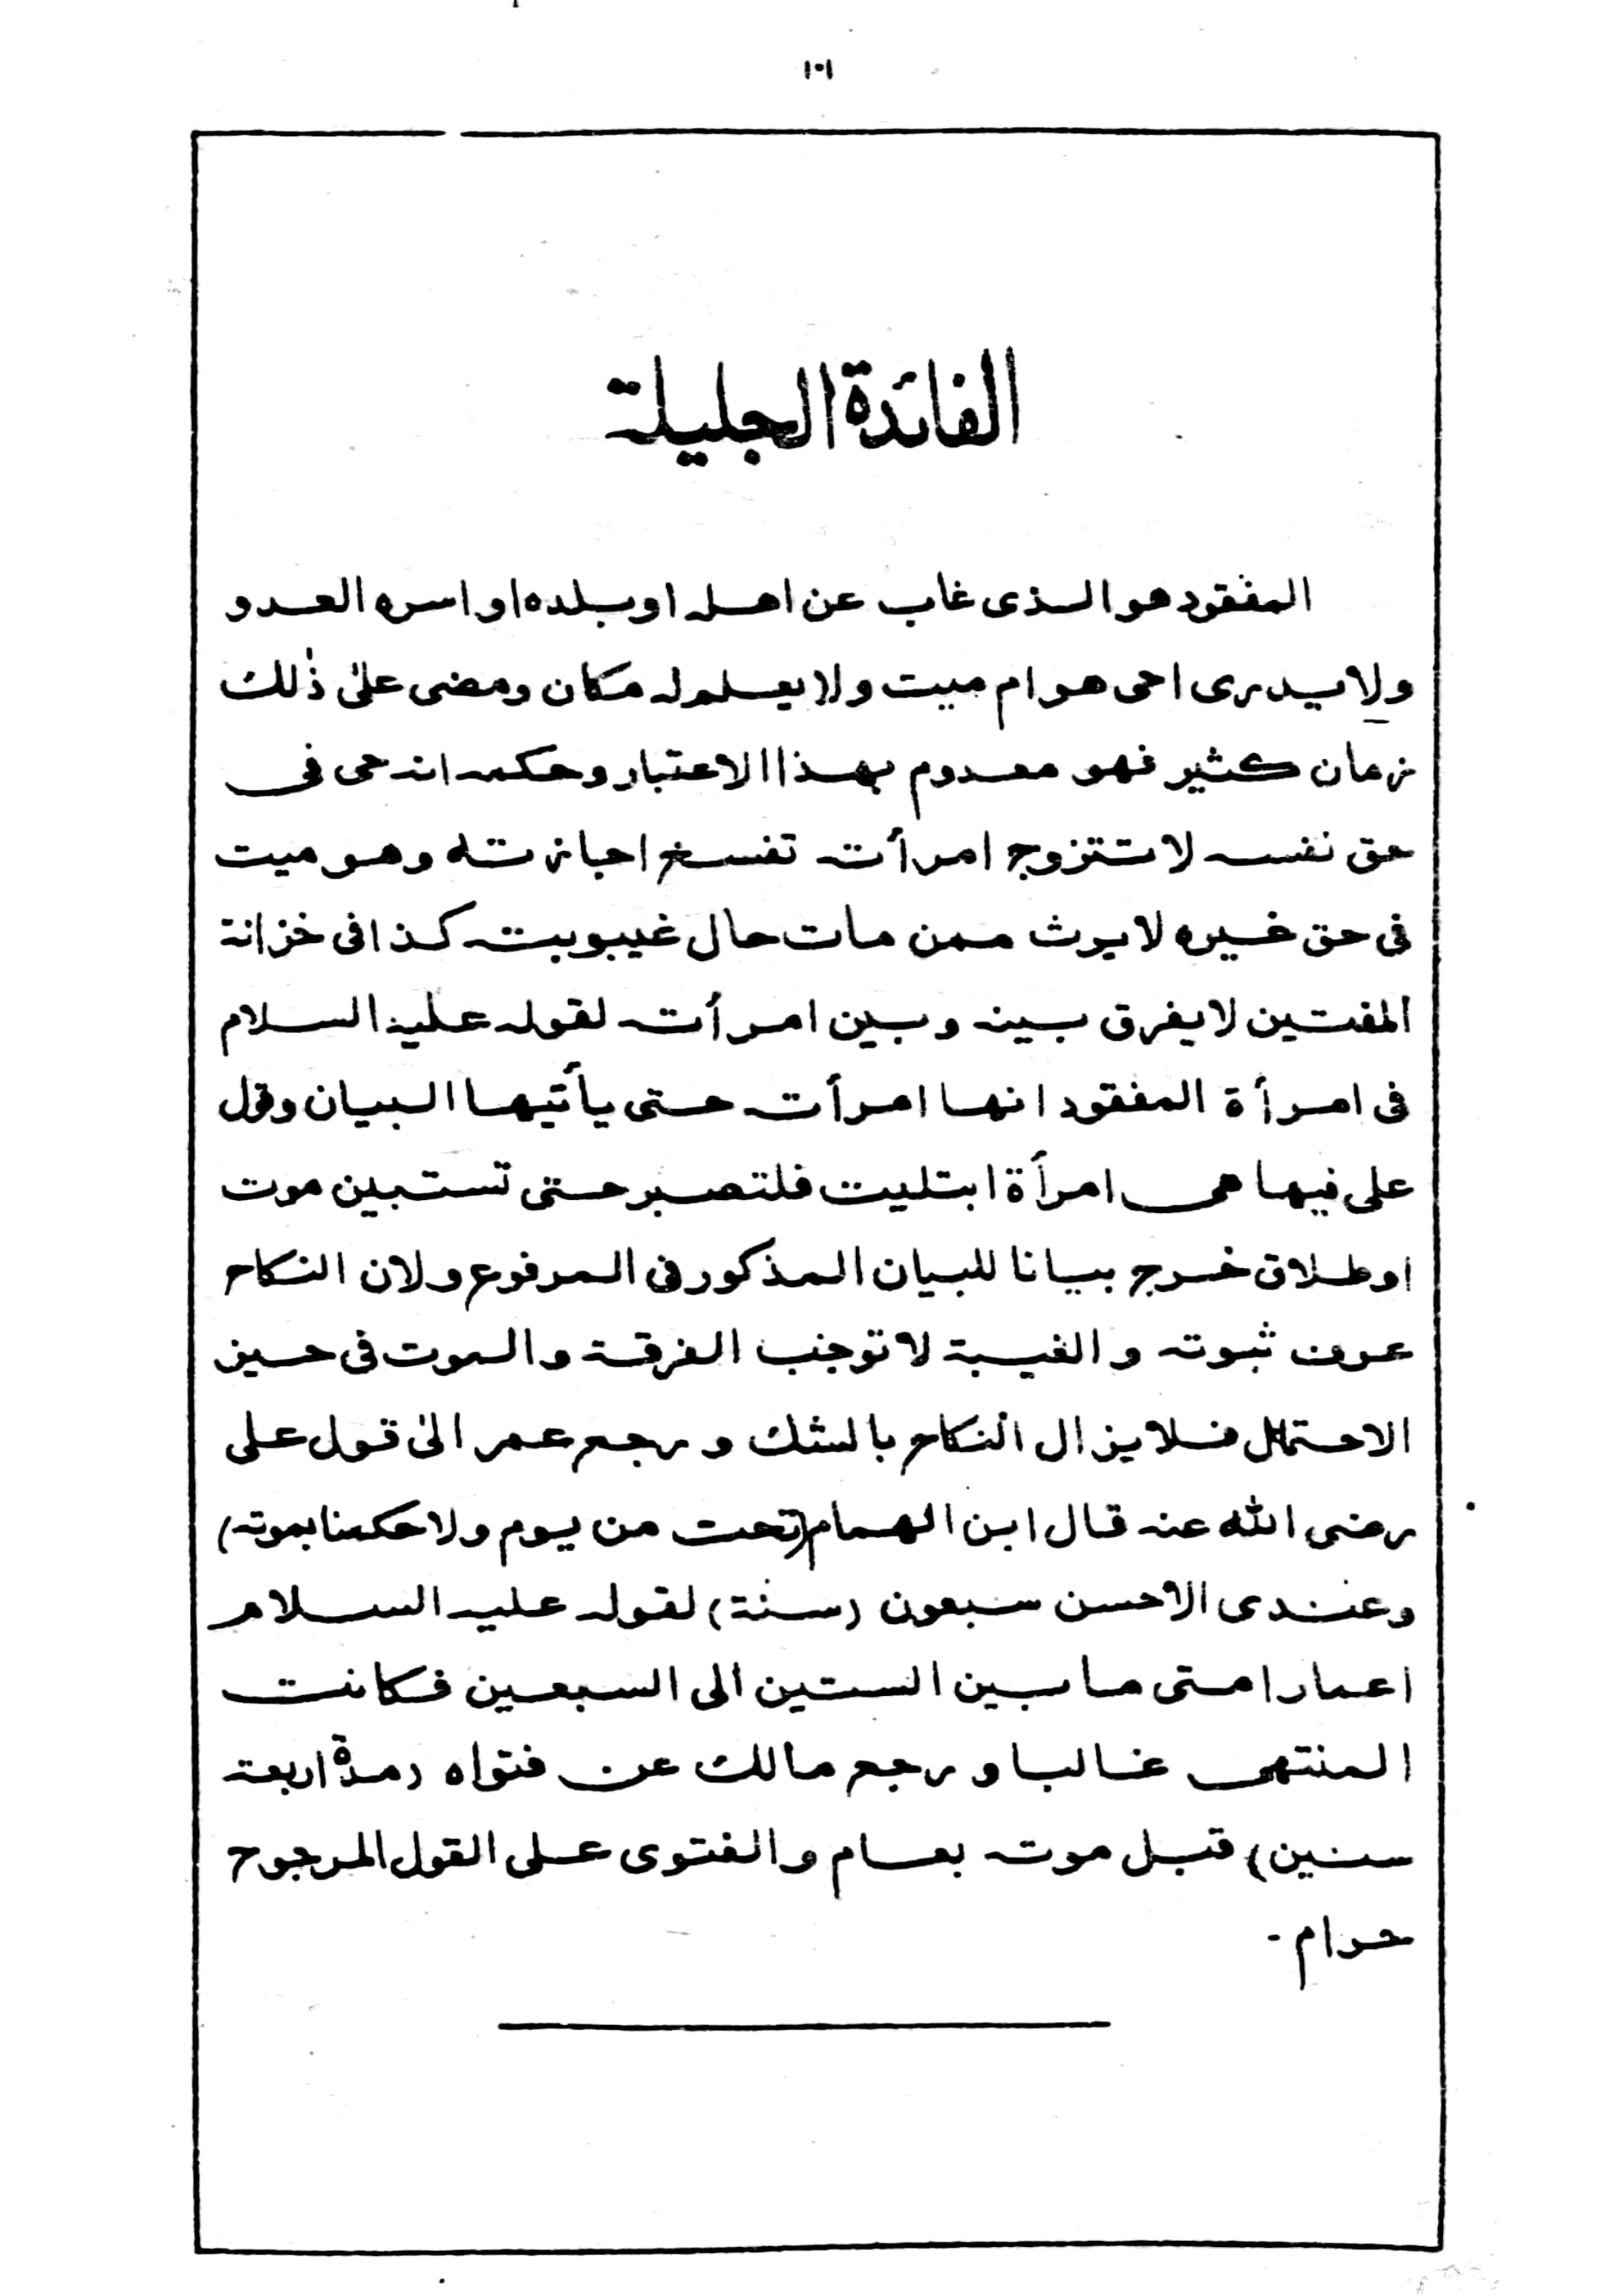 ١٠١
الفائدة الجليلة
المفقود هو الذى غاب عن اهله او بلده او اسره العدو
ولا يدرى احى هو ام ميت ولا يعلم له مكان ومضى على ذٰلك
زمان كثير فهو معدوم بهذا الاعتبار وحكمه انه حى فى
حق نفسه لا تتزوج امرأته تفسخ اجازته وهو ميت
فى حق غيره لا يرث ممن مات حال غيبوبته كذا فى خزانة
المفتين لا يفرق بينه وبين امرأته لقوله عليه السلام
فى امرأة المفقود انها امرأته حتى يأتيها البيان وقول
على فيها هى امرأة ابتليت فلتصبر حتى تستبين موت
او طلاق خرج بيانا للبيان المذكور فى المرفوع ولان النكاح
عرف ثبوته والغيبة لا توجب الفرقة والموت فى حين
الاحتمال فلا يزال النكاح بالشك ورجع عمر الىٰ قول على
رضى الله عنه قال ابن الهمام (تحت من يوم ولا حكمنا بموته)
وعندى الاحسن سبعون (سنة) لقوله عليه السلام
اعمار امتى ما بين الستين الى السبعين فكانت
المنتهى غالبا ورجع مالك عن فتواه (مدة اربعة
سنين) قبل موته بعام والفتوى على القول المرجوح
حرام -